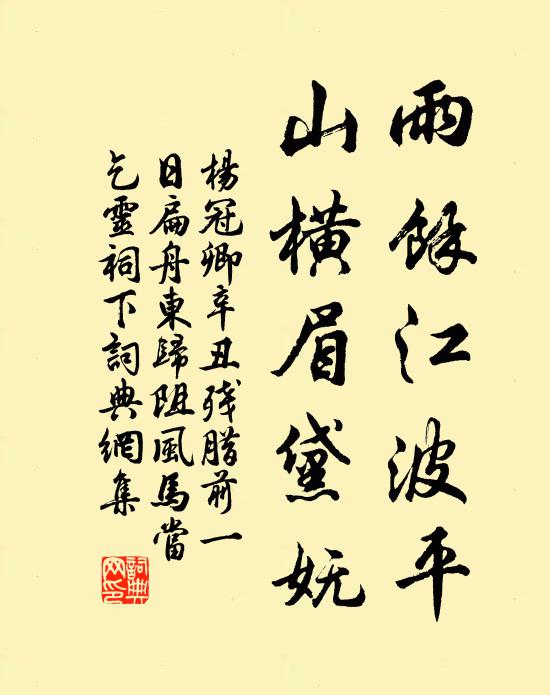 雨餘江波平
山橫眉黛妩
楊冠卿辛丑残腊前一
日扁舟東歸阻風馬當
乞靈祠下詞典網集
詞典
网印